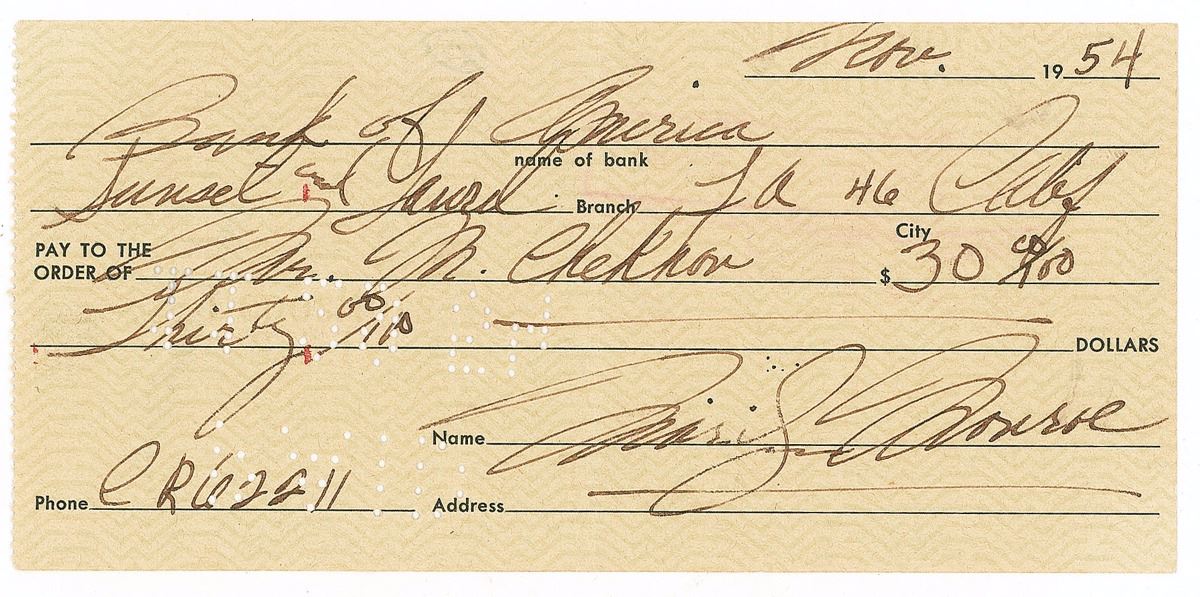 Nov. 19 54
Bank of America
name of bank
Sunset and Laurel Branch L A 46 Calif
City
PAY TO THE
ORDER OF Mr. M. Chekhov $ 30 00/100
Thirty 00/100 DOLLARS
Name Marilyn Monroe
Phone CR62211 Address